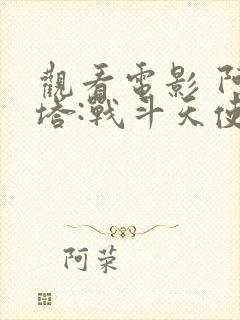 觀看電影 阿
塔:戰斗天使
阿荣